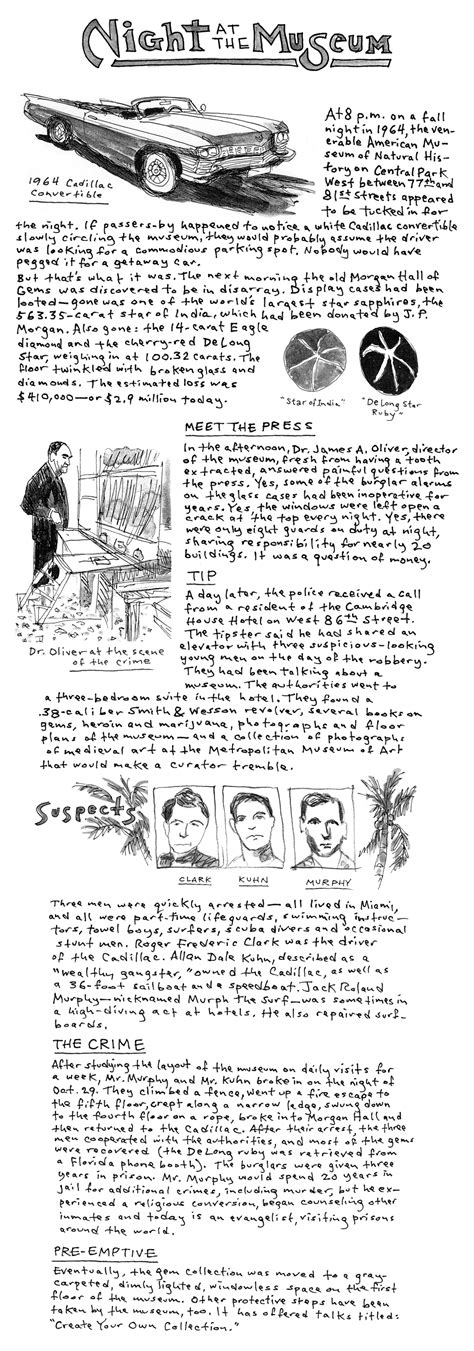 Night AT THE Museum
1964 Cadillac
Convertible
At 8 p.m. on a fall
night in 1964, the ven-
erable American Mu-
seum of Natural His-
tory on Central Park
West between 77th and
81st Streets appeared
to be tucked in for
the night. If passers-by happened to notice a white Cadillac convertible
slowly circling the museum, they would probably assume the driver
was looking for a commodious parking spot. Nobody would have
pegged it for a getaway car.
But that's what it was. The next morning the old Morgan Hall of
Gems was discovered to be in disarray. Display cases had been
looted—gone was one of the world's largest star sapphires, the
563.35-carat star of India, which had been donated by J.P.
Morgan. Also gone: the 14-carat Eagle
diamond and the cherry-red DeLong
Star, weighing in at 100.32 carats. The
floor twinkled with broken glass and
diamonds. The estimated loss was
$410,000—or $2.9 million today.
"Star of India"
"DeLong Star
Ruby"
MEET THE PRESS
In the afternoon, Dr. James A. Oliver, director
of the museum, fresh from having a tooth
extracted, answered painful questions from
the press. Yes, some of the burglar alarms
on the glass cases had been inoperative for
years. Yes, the windows were left open a
crack at the top every night. Yes, there
were only eight guards on duty at night,
sharing responsibility for nearly 20
buildings. It was a question of money.
Dr. Oliver at the scene
of the crime
TIP
A day later, the police received a call
from a resident of the Cambridge
House Hotel on West 86th Street.
The tipster said he had shared an
elevator with three suspicious-looking
young men on the day of the robbery.
They had been talking about a
museum. The authorities went to
a three-bedroom suite in the hotel. They found a
.38-caliber Smith & Wesson revolver, several books on
gems, heroin and marijuana, photographs and floor
plans of the museum—and a collection of photographs
of medieval art at the Metropolitan Museum of Art
that would make a curator tremble.
Suspects
CLARK
KUHN
MURPHY
Three men were quickly arrested—all lived in Miami,
and all were part-time lifeguards, swimming instruc-
tors, towel boys, surfers, scuba divers and occasional
stunt men. Roger Frederic Clark was the driver
of the Cadillac. Allan Dale Kuhn, described as a
"wealthy gangster," owned the Cadillac, as well as
a 36-foot sailboat and a speedboat. Jack Roland
Murphy—nicknamed Murph the Surf—was sometimes in
a high-diving act at hotels. He also repaired surf-
boards.
THE CRIME
After studying the layout of the museum on daily visits for
a week, Mr. Murphy and Mr. Kuhn broke in on the night of
Oct. 29. They climbed a fence, went up a fire escape to
the fifth floor, crept along a narrow ledge, swung down
to the fourth floor on a rope, broke into Morgan Hall and
then returned to the Cadillac. After their arrest, the three
men cooperated with the authorities, and most of the gems
were recovered (the DeLong ruby was retrieved from
a Florida phone booth). The burglars were given three
years in prison. Mr. Murphy would spend 20 years in
jail for additional crimes, including murder, but he ex-
perienced a religious conversion, began counseling other
inmates and today is an evangelist, visiting prisons
around the world.
PRE-EMPTIVE
Eventually, the gem collection was moved to a gray-
carpeted, dimly lighted, windowless space on the first
floor of the museum. Other protective steps have been
taken by the museum, too. It has offered talks titled:
"Create Your Own Collection."